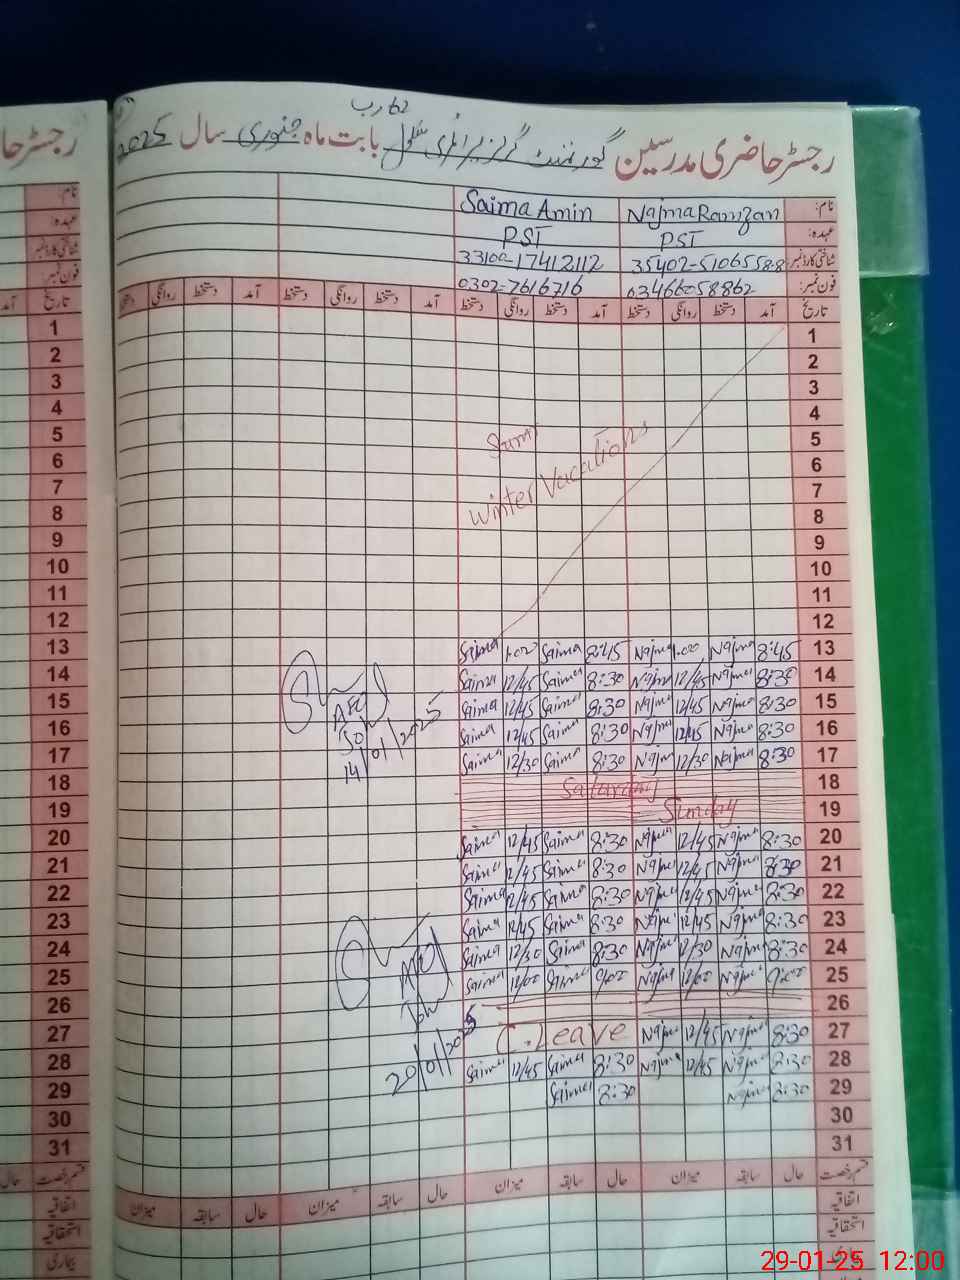 62 رب
رجسٹر حاضری مدرسین گورنمنٹ گرلز پرائمری سکول بابت ماہ جنوری سال 2025
رجسٹر حا
نام: Najma Ramzan Saima Amin
عہدہ: PST PST
شناختی کارڈ نمبر: 35402-5106558-8 33100-17412112
فون نمبر: 03466058862 0302-7616716
تاریخ آمد دستخط روانگی دستخط آمد دستخط روانگی دستخط آمد دستخط روانگی دستخط آمد دستخط روانگی دستخط
1
2
3
4
5
Winter Vacations
6
7
8
9
10
11
12
13 8:45 Najma 1.00 Najma 8:45 Saima 1.00 Saima
14 8:30 Najma 12/45 Najma 8:30 Saima 12/45 Saima
15 8:30 Najma 12/45 Najma 8:30 Saima 12/45 Saima
16 8:30 Najma 12/45 Najma 8:30 Saima 12/45 Saima
17 8:30 Najma 12/30 Najma 8:30 Saima 12/30 Saima
14/01/2025
18 Saturday
19 Sunday
20 8:30 Najma 12/45 Najma 8:30 Saima 12/45 Saima
21 8:30 Najma 12/45 Najma 8:30 Saima 12/45 Saima
22 8:30 Najma 12/45 Najma 8:30 Saima 12/45 Saima
23 8:30 Najma 12/45 Najma 8:30 Saima 12/45 Saima
24 8:30 Najma 12/30 Najma 8:30 Saima 12/30 Saima
25 9:00 Najma 12/00 Najma 9:00 Saima 12/00 Saima
26
27 8:30 Najma 12/45 Najma C.Leave
28 8:30 Najma 12/45 Najma 8:30 Saima 12/45 Saima
20/01/2025
29 8:30 Najma 8:30 Saima
30
31
قسم رخصت حال سابقہ میزان حال سابقہ میزان حال سابقہ میزان حال سابقہ میزان
اتفاقیہ
استحقاقیہ
بیماری
29-01-25 12:00